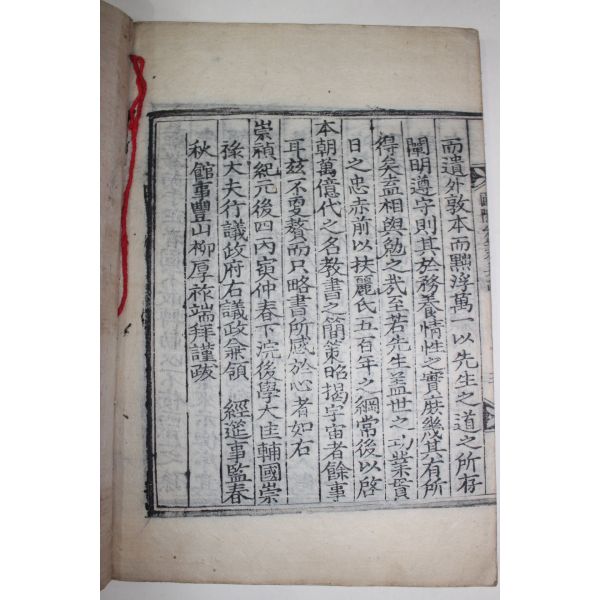 而遺外敦本而黜浮萬一以先生之道之所存
闡明遵守則其於務養情性之實庶幾其有所
得矣盍相與勉之哉至若先生盖世之功業貫
日之忠赤前以扶麗氏五百年之綱常後以啓
本朝萬億代之名教書之簡策昭揭宇宙者餘事
耳玆不更贅而只略書所感於心者如右
崇禎紀元後四丙寅仲春下浣後學大匡輔國崇
祿大夫行議政府右議政兼領 經筵事監春
秋館事豐山柳厚祚端拜謹跋